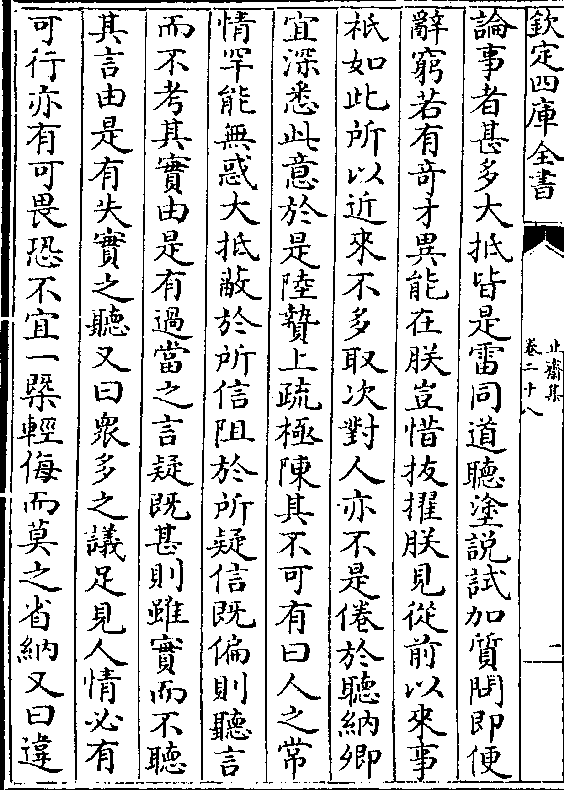 欽定四庫全書
止齋集
卷二十八
二
論事者甚多大抵皆是雷同道聽塗説試加質問即便
辭窮若有竒才異能在朕豈惜拔擢朕見從前以來事
祇如此所以近來不多取次對人亦不是倦於聽納卿
宜深悉此意於是陸贄上疏極陳其不可有曰人之常
情罕能無惑大抵蔽於所信阻於所疑信既偏則聽言
而不考其實由是有過當之言疑既甚則雖實而不聽
其言由是有失實之聽又曰衆多之議足見人情必有
可行亦有可畏恐不宜一槩輕侮而莫之省納又曰違